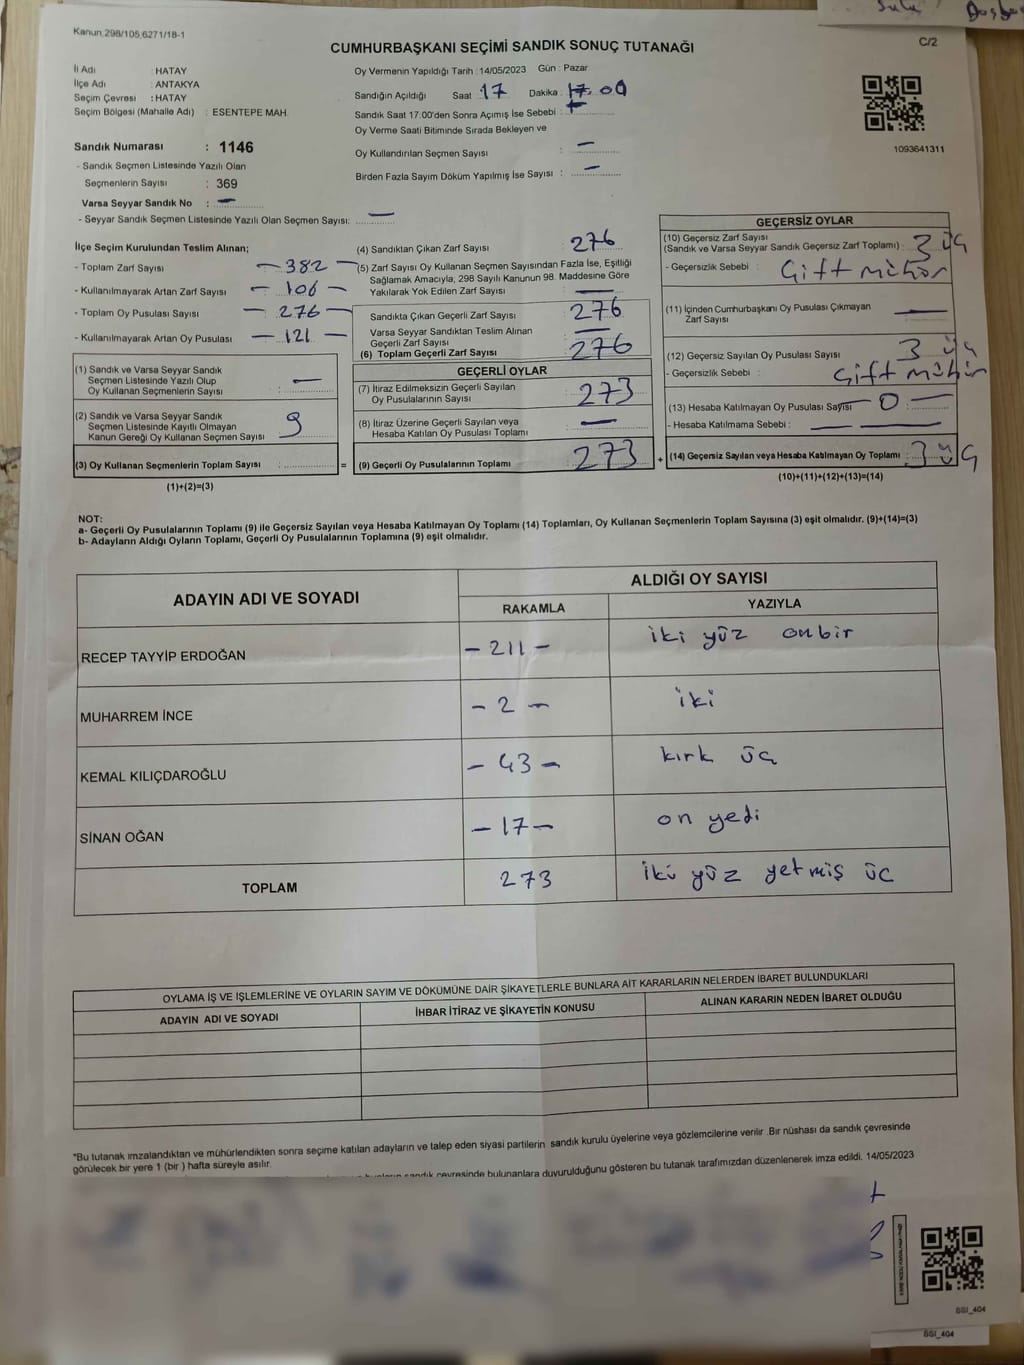 Sulu Başba
Kanun,298/105,6271/18-1
C/2
CUMHURBAŞKANI SEÇİMİ SANDIK SONUÇ TUTANAĞI
İl Adı : HATAY
İlçe Adı : ANTAKYA
Seçim Çevresi : HATAY
Seçim Bölgesi (Mahalle Adı) : ESENTEPE MAH.
Sandık Numarası : 1146
- Sandık Seçmen Listesinde Yazılı Olan
Seçmenlerin Sayısı : 369
Varsa Seyyar Sandık No : —
- Seyyar Sandık Seçmen Listesinde Yazılı Olan Seçmen Sayısı: —
Oy Vermenin Yapıldığı Tarih : 14/05/2023 Gün : Pazar
Sandığın Açıldığı Saat 17 Dakika : 17.00
Sandık Saat 17:00'den Sonra Açımış İse Sebebi :
Oy Verme Saati Bitiminde Sırada Bekleyen ve
Oy Kullandırılan Seçmen Sayısı : —
Birden Fazla Sayım Döküm Yapılmış İse Sayısı : —
1093641311
İlçe Seçim Kurulundan Teslim Alınan;
- Toplam Zarf Sayısı — 382 —
- Kullanılmayarak Artan Zarf Sayısı — 106 —
- Toplam Oy Pusulası Sayısı — 276 —
- Kullanılmayarak Artan Oy Pusulası — 121 —
(1) Sandık ve Varsa Seyyar Sandık
Seçmen Listesinde Yazılı Olup
Oy Kullanan Seçmenlerin Sayısı : —
(2) Sandık ve Varsa Seyyar Sandık
Seçmen Listesinde Kayıtlı Olmayan
Kanun Gereği Oy Kullanan Seçmen Sayısı : 9
(3) Oy Kullanan Seçmenlerin Toplam Sayısı :
(1)+(2)=(3)
(4) Sandıktan Çıkan Zarf Sayısı : 276
(5) Zarf Sayısı Oy Kullanan Seçmen Sayısından Fazla İse, Eşitliği
Sağlamak Amacıyla, 298 Sayılı Kanunun 98. Maddesine Göre
Yakılarak Yok Edilen Zarf Sayısı : —
Sandıkta Çıkan Geçerli Zarf Sayısı : 276
Varsa Seyyar Sandıktan Teslim Alınan
Geçerli Zarf Sayısı : —
(6) Toplam Geçerli Zarf Sayısı : 276
GEÇERLİ OYLAR
(7) İtiraz Edilmeksizin Geçerli Sayılan
Oy Pusulalarının Sayısı : 273
(8) İtiraz Üzerine Geçerli Sayılan veya
Hesaba Katılan Oy Pusulası Toplamı : —
= (9) Geçerli Oy Pusulalarının Toplamı : 273
GEÇERSİZ OYLAR
(10) Geçersiz Zarf Sayısı
(Sandık ve Varsa Seyyar Sandık Geçersiz Zarf Toplamı) : 3 üç
- Geçersizlik Sebebi : Çift mühür
(11) İçinden Cumhurbaşkanı Oy Pusulası Çıkmayan
Zarf Sayısı : —
(12) Geçersiz Sayılan Oy Pusulası Sayısı : 3 üç
- Geçersizlik Sebebi : Çift mühür
(13) Hesaba Katılmayan Oy Pusulası Sayısı — 0 —
- Hesaba Katılmama Sebebi : —
+ (14) Geçersiz Sayılan veya Hesaba Katılmayan Oy Toplamı : 3 üç
(10)+(11)+(12)+(13)=(14)
NOT:
a- Geçerli Oy Pusulalarının Toplamı (9) ile Geçersiz Sayılan veya Hesaba Katılmayan Oy Toplamı (14) Toplamları, Oy Kullanan Seçmenlerin Toplam Sayısına (3) eşit olmalıdır. (9)+(14)=(3)
b- Adayların Aldığı Oyların Toplamı, Geçerli Oy Pusulalarının Toplamına (9) eşit olmalıdır.
ADAYIN ADI VE SOYADI
ALDIĞI OY SAYISI
RAKAMLA YAZIYLA
RECEP TAYYİP ERDOĞAN - 211 - iki yüz onbir
MUHARREM İNCE - 2 - iki
KEMAL KILIÇDAROĞLU - 43 - kırk üç
SİNAN OĞAN - 17 - on yedi
TOPLAM 273 iki yüz yetmiş üç
OYLAMA İŞ VE İŞLEMLERİNE VE OYLARIN SAYIM VE DÖKÜMÜNE DAİR ŞİKAYETLERLE BUNLARA AİT KARARLARIN NELERDEN İBARET BULUNDUKLARI
ADAYIN ADI VE SOYADI İHBAR İTİRAZ VE ŞİKAYETİN KONUSU ALINAN KARARIN NEDEN İBARET OLDUĞU
*Bu tutanak imzalandıktan ve mühürlendikten sonra seçime katılan adayların ve talep eden siyasi partilerin sandık kurulu üyelerine veya gözlemcilerine verilir .Bir nüshası da sandık çevresinde
görülecek bir yere 1 (bir ) hafta süreyle asılır.
sandık çevresinde bulunanlara duyurulduğunu gösteren bu tutanak tarafımızdan düzenlenerek imza edildi. 14/05/2023
SSI_404
SSI_404